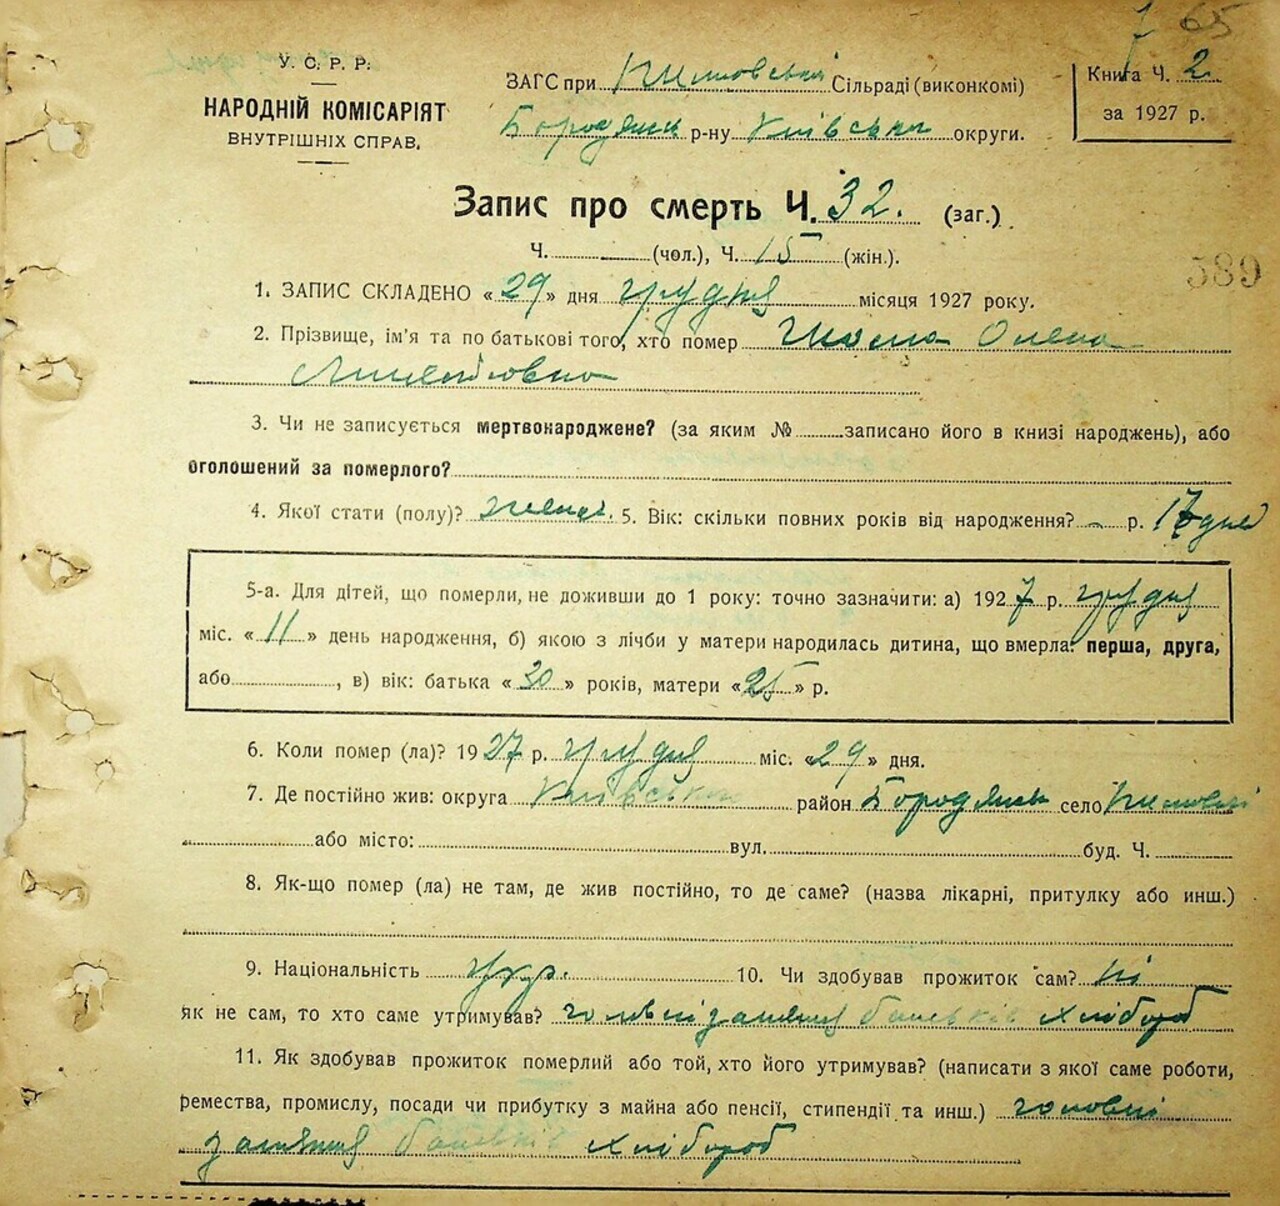 65
У. С. Р. Р.
НАРОДНІЙ КОМІСАРІЯТ
ВНУТРІШНІХ СПРАВ.
ЗАГС при Сільраді (виконкомі)
Бородянськ р-ну Київськ округи.
Книга Ч. 2
за 1927 р.
Запис про смерть Ч. 32. (заг.)
Ч. (чол.), Ч. 15 (жін.).
589
1. ЗАПИС СКЛАДЕНО « 29 » дня грудня місяця 1927 року.
2. Прізвище, ім'я та по батькові того, хто помер Олена
3. Чи не записується мертвонароджене? (за яким № записано його в книзі народжень), або
оголошений за померлого?
4. Якої стати (полу)? 5. Вік: скільки повних років від народження? – р. дней
5-а. Для дітей, що померли, не доживши до 1 року: точно зазначити: а) 1927 р. грудня
міс. « 11 » день народження, б) якою з лічби у матери народилась дитина, що вмерла: перша, друга,
або , в) вік: батька « 30 » років, матери « 25 » р.
6. Коли помер (ла)? 1927 р. грудня міс. « 29 » дня.
7. Де постійно жив: округа Київська район Бородянськ село
або місто: вул. буд. Ч.
8. Як-що помер (ла) не там, де жив постійно, то де саме? (назва лікарні, притулку або инш.)
9. Національність укр. 10. Чи здобував прожиток сам? ні
як не сам, то хто саме утримував? головні заняття батьків хлібороб
11. Як здобував прожиток померлий або той, хто його утримував? (написати з якої саме роботи,
ремества, промислу, посади чи прибутку з майна або пенсії, стипендії та инш.) головні
заняття батьків хлібороб